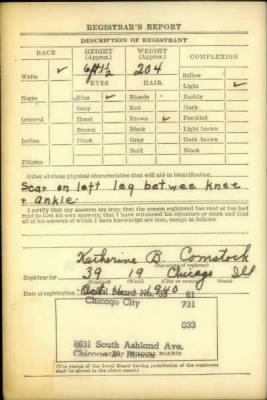 REGISTRAR'S REPORT
DESCRIPTION OF REGISTRANT
RACE HEIGHT (Approx.) WEIGHT (Approx.) COMPLEXION
White ✓ 6ft 1½ 204 Sallow
EYES HAIR Light ✓
Negro Blue ✓ Blonde Ruddy
Gray Red Dark
Oriental Hazel Brown ✓ Freckled
Brown Black Light brown
Indian Black Gray Dark brown
Bald Black
Filipino
Other obvious physical characteristics that will aid in identification
Scar on left leg betwee knee
+ ankle.
I certify that my answers are true; that the person registered has read or has had
read to him his own answers; that I have witnessed his signature or mark and that
all of his answers of which I have knowledge are true, except as follows:
Katherine B. Comstock
(Signature of registrar)
Registrar for 39 19 Chicago Ill
(Ward) (City or county) (State)
Date of registration
Board No. 61
Chicago City 731
033
8631 South Ashland Ave.
Chicago Illinois
(The stamp of the Local Board having jurisdiction of the registrant
shall be placed in the above space.)